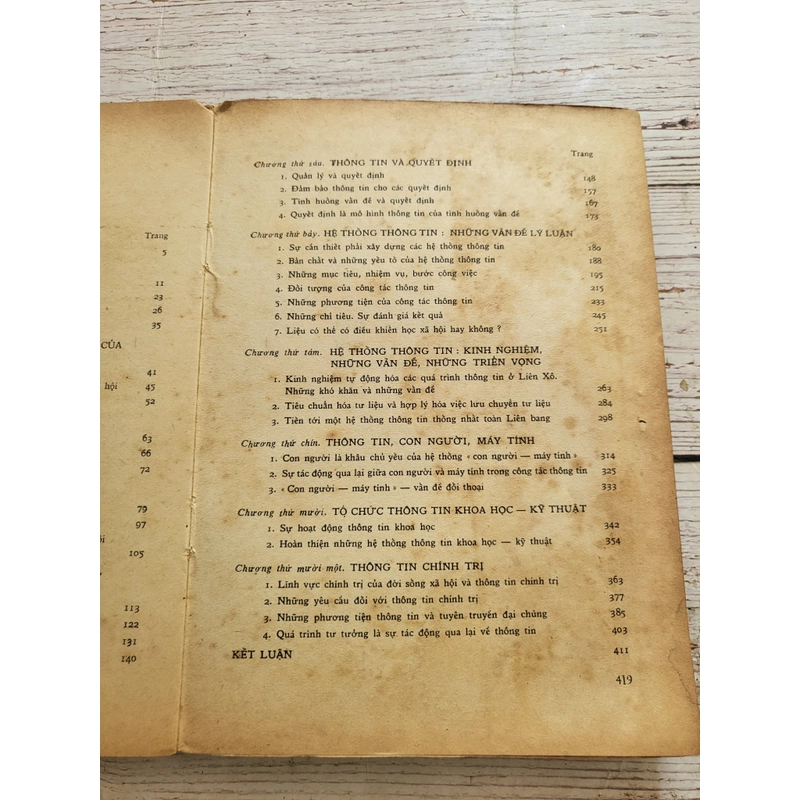 Trang
5
11
23
26
35
CỦA
41
hội 45
52
63
66
72
79
97
105
113
122
131
140
Trang
Chương thứ sáu. THÔNG TIN VÀ QUYẾT ĐỊNH
1. Quản lý và quyết định 148
2. Đảm bảo thông tin cho các quyết định 157
3. Tình huống vấn đề và quyết định 167
4. Quyết định là mô hình thông tin của tình huống vấn đề 173
Chương thứ bảy. HỆ THỐNG THÔNG TIN : NHỮNG VẤN ĐỀ LÝ LUẬN
1. Sự cần thiết phải xây dựng các hệ thống thông tin 180
2. Bản chất và những yếu tố của hệ thống thông tin 188
3. Những mục tiêu, nhiệm vụ, bước công việc 195
4. Đối tượng của công tác thông tin 215
5. Những phương tiện của công tác thông tin 233
6. Những chỉ tiêu. Sự đánh giá kết quả 245
7. Liệu có thể có điều khiển học xã hội hay không ? 251
Chương thứ tám. HỆ THỐNG THÔNG TIN : KINH NGHIỆM,
NHỮNG VẤN ĐỀ, NHỮNG TRIỂN VỌNG
1. Kinh nghiệm tự động hóa các quá trình thông tin ở Liên Xô.
Những khó khăn và những vấn đề 263
2. Tiêu chuẩn hóa tư liệu và hợp lý hóa việc lưu chuyển tư liệu 284
3. Tiến tới một hệ thống thông tin thống nhất toàn Liên bang 298
Chương thứ chín. THÔNG TIN, CON NGƯỜI, MÁY TÍNH
1. Con người là khâu chủ yếu của hệ thống « con người — máy tính» 314
2. Sự tác động qua lại giữa con người và máy tính trong công tác thông tin 325
3. « Con người — máy tính» — vấn đề đối thoại 333
Chương thứ mười. TỔ CHỨC THÔNG TIN KHOA HỌC — KỸ THUẬT
1. Sự hoạt động thông tin khoa học 342
2. Hoàn thiện những hệ thống thông tin khoa học — kỹ thuật 354
Chương thứ mười một. THÔNG TIN CHÍNH TRỊ
1. Lĩnh vực chính trị của đời sống xã hội và thông tin chính trị 363
2. Những yêu cầu đối với thông tin chính trị 377
3. Những phương tiện thông tin và tuyên truyền đại chúng 385
4. Quá trình tư tưởng là sự tác động qua lại về thông tin 403
KẾT LUẬN 411
419